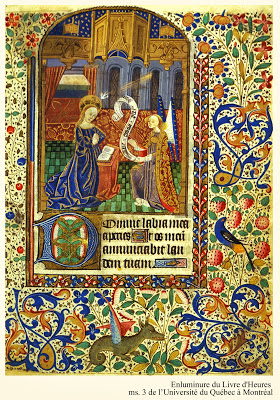 Domine labia mea
aperies Et os meū
annunciabit lau
dem tuam
Enluminure du Livre d'Heures
ms. 3 de l'Université du Québec à Montréal